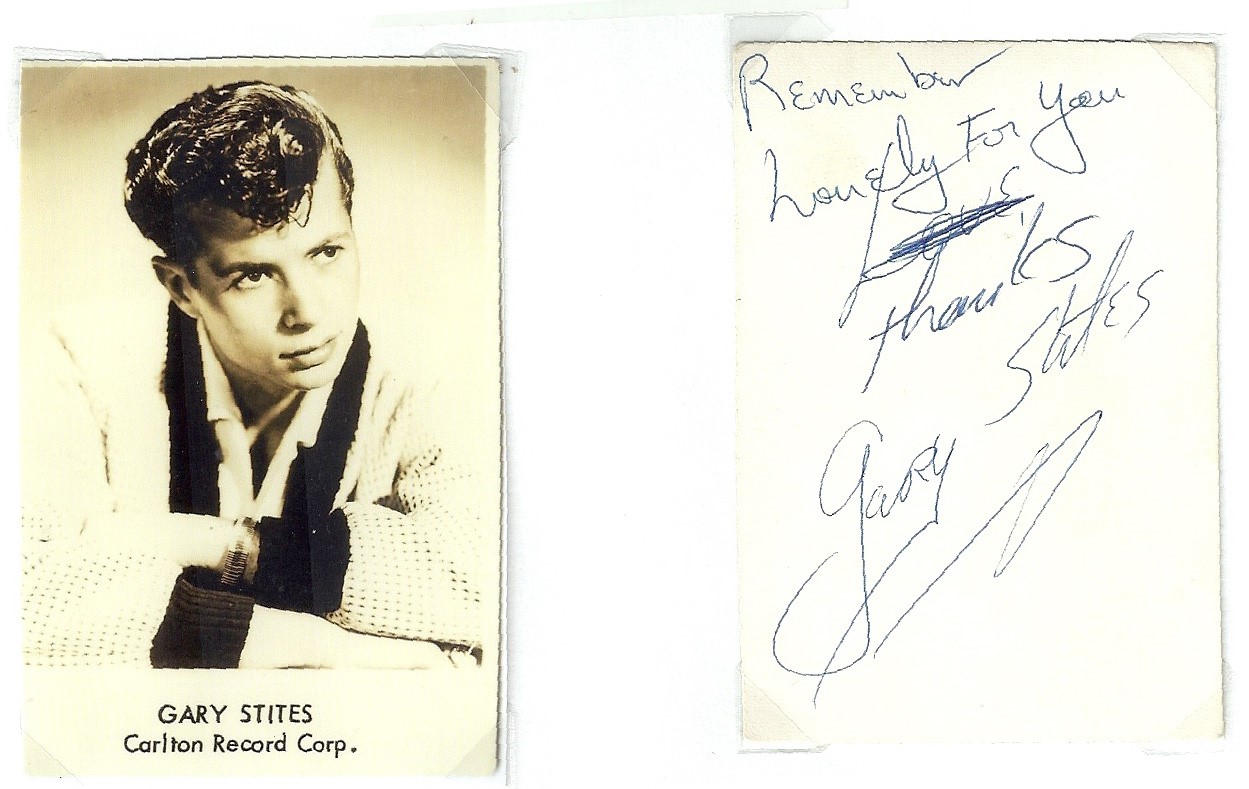 GARY STITES
Carlton Record Corp.
Remember
Lonely For You
thanks
Gary Stites